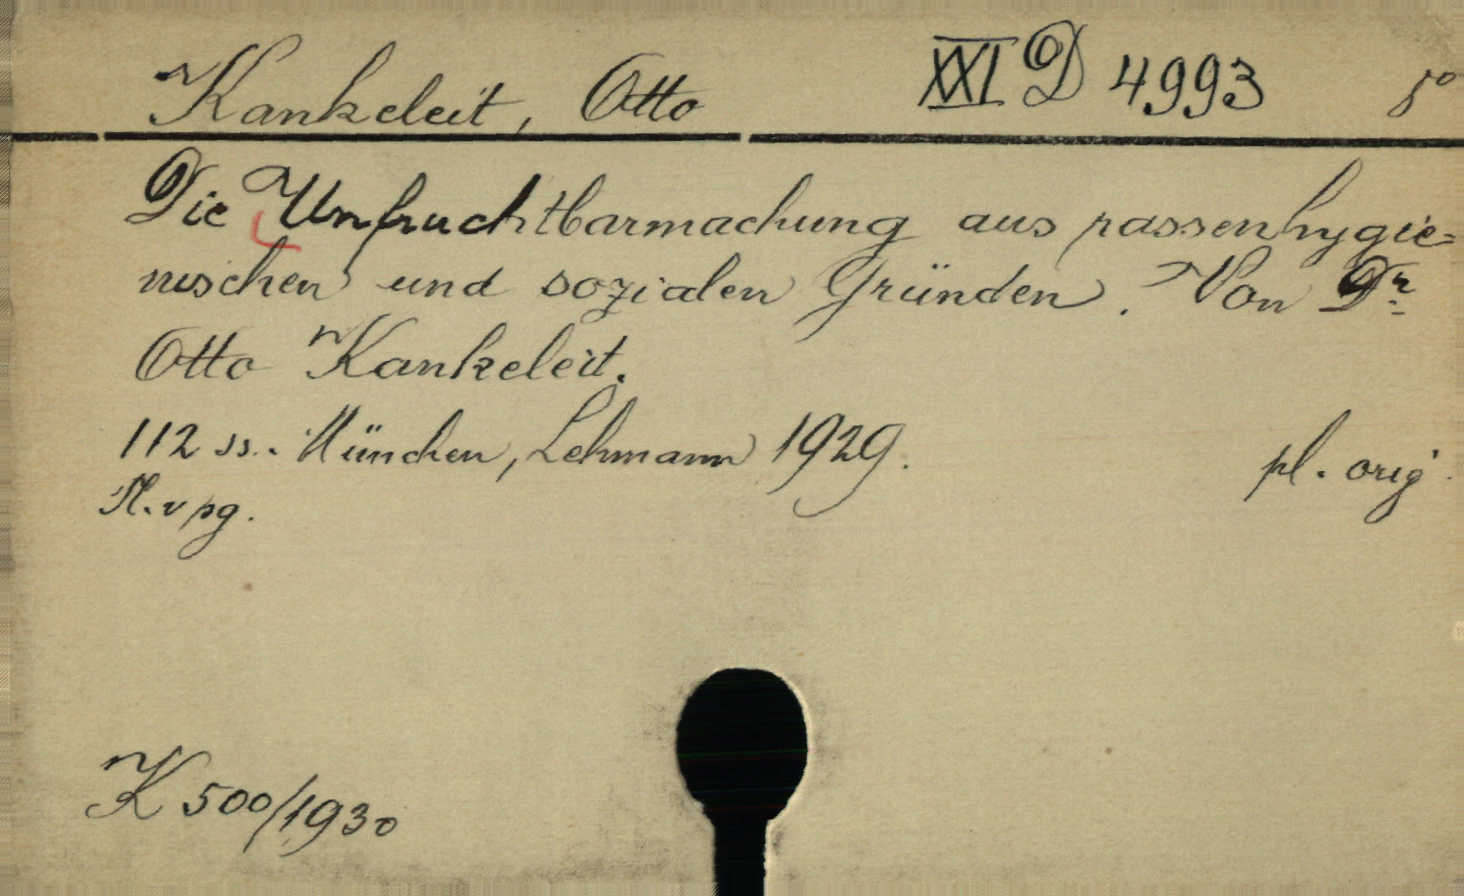 Kankeleit, Otto XXI D 4993 8°
Die Unfruchtbarmachung aus rassenhygie=
nischen und sozialen Gründen. Von Dr
Otto Kankeleit.
112 ss. München, Lehmann 1929.
pl. orig.
K 500/1930